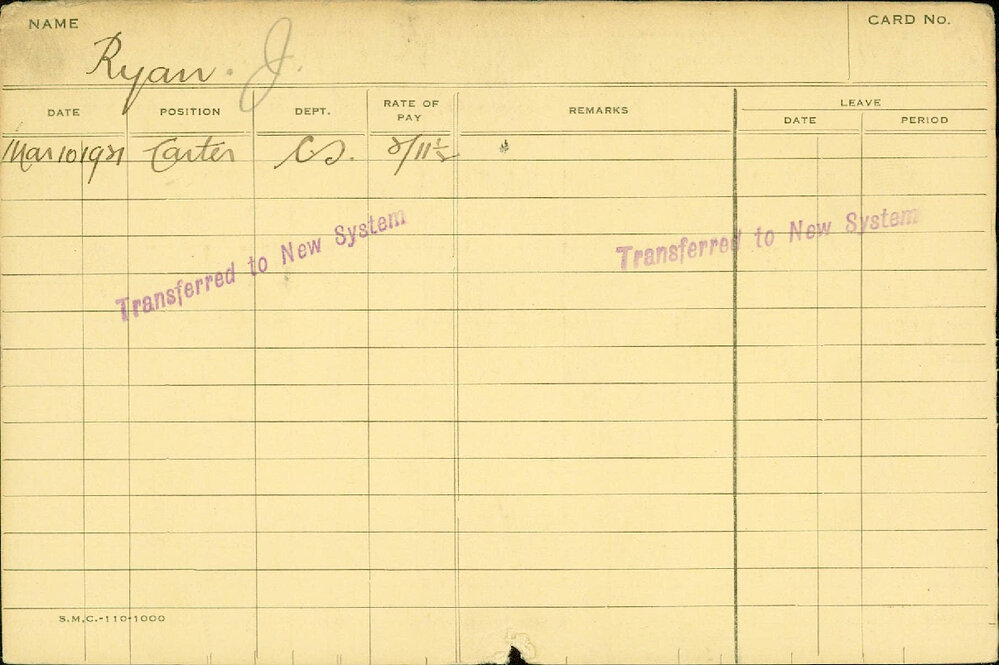 NAME
CARD No.
Ryan. J.
DATE POSITION DEPT. RATE OF PAY REMARKS LEAVE
DATE PERIOD
Mar 10 1921 Carter CS. 2/11½
Transferred to New System
Transferred to New System
S.M.C.-110-1000